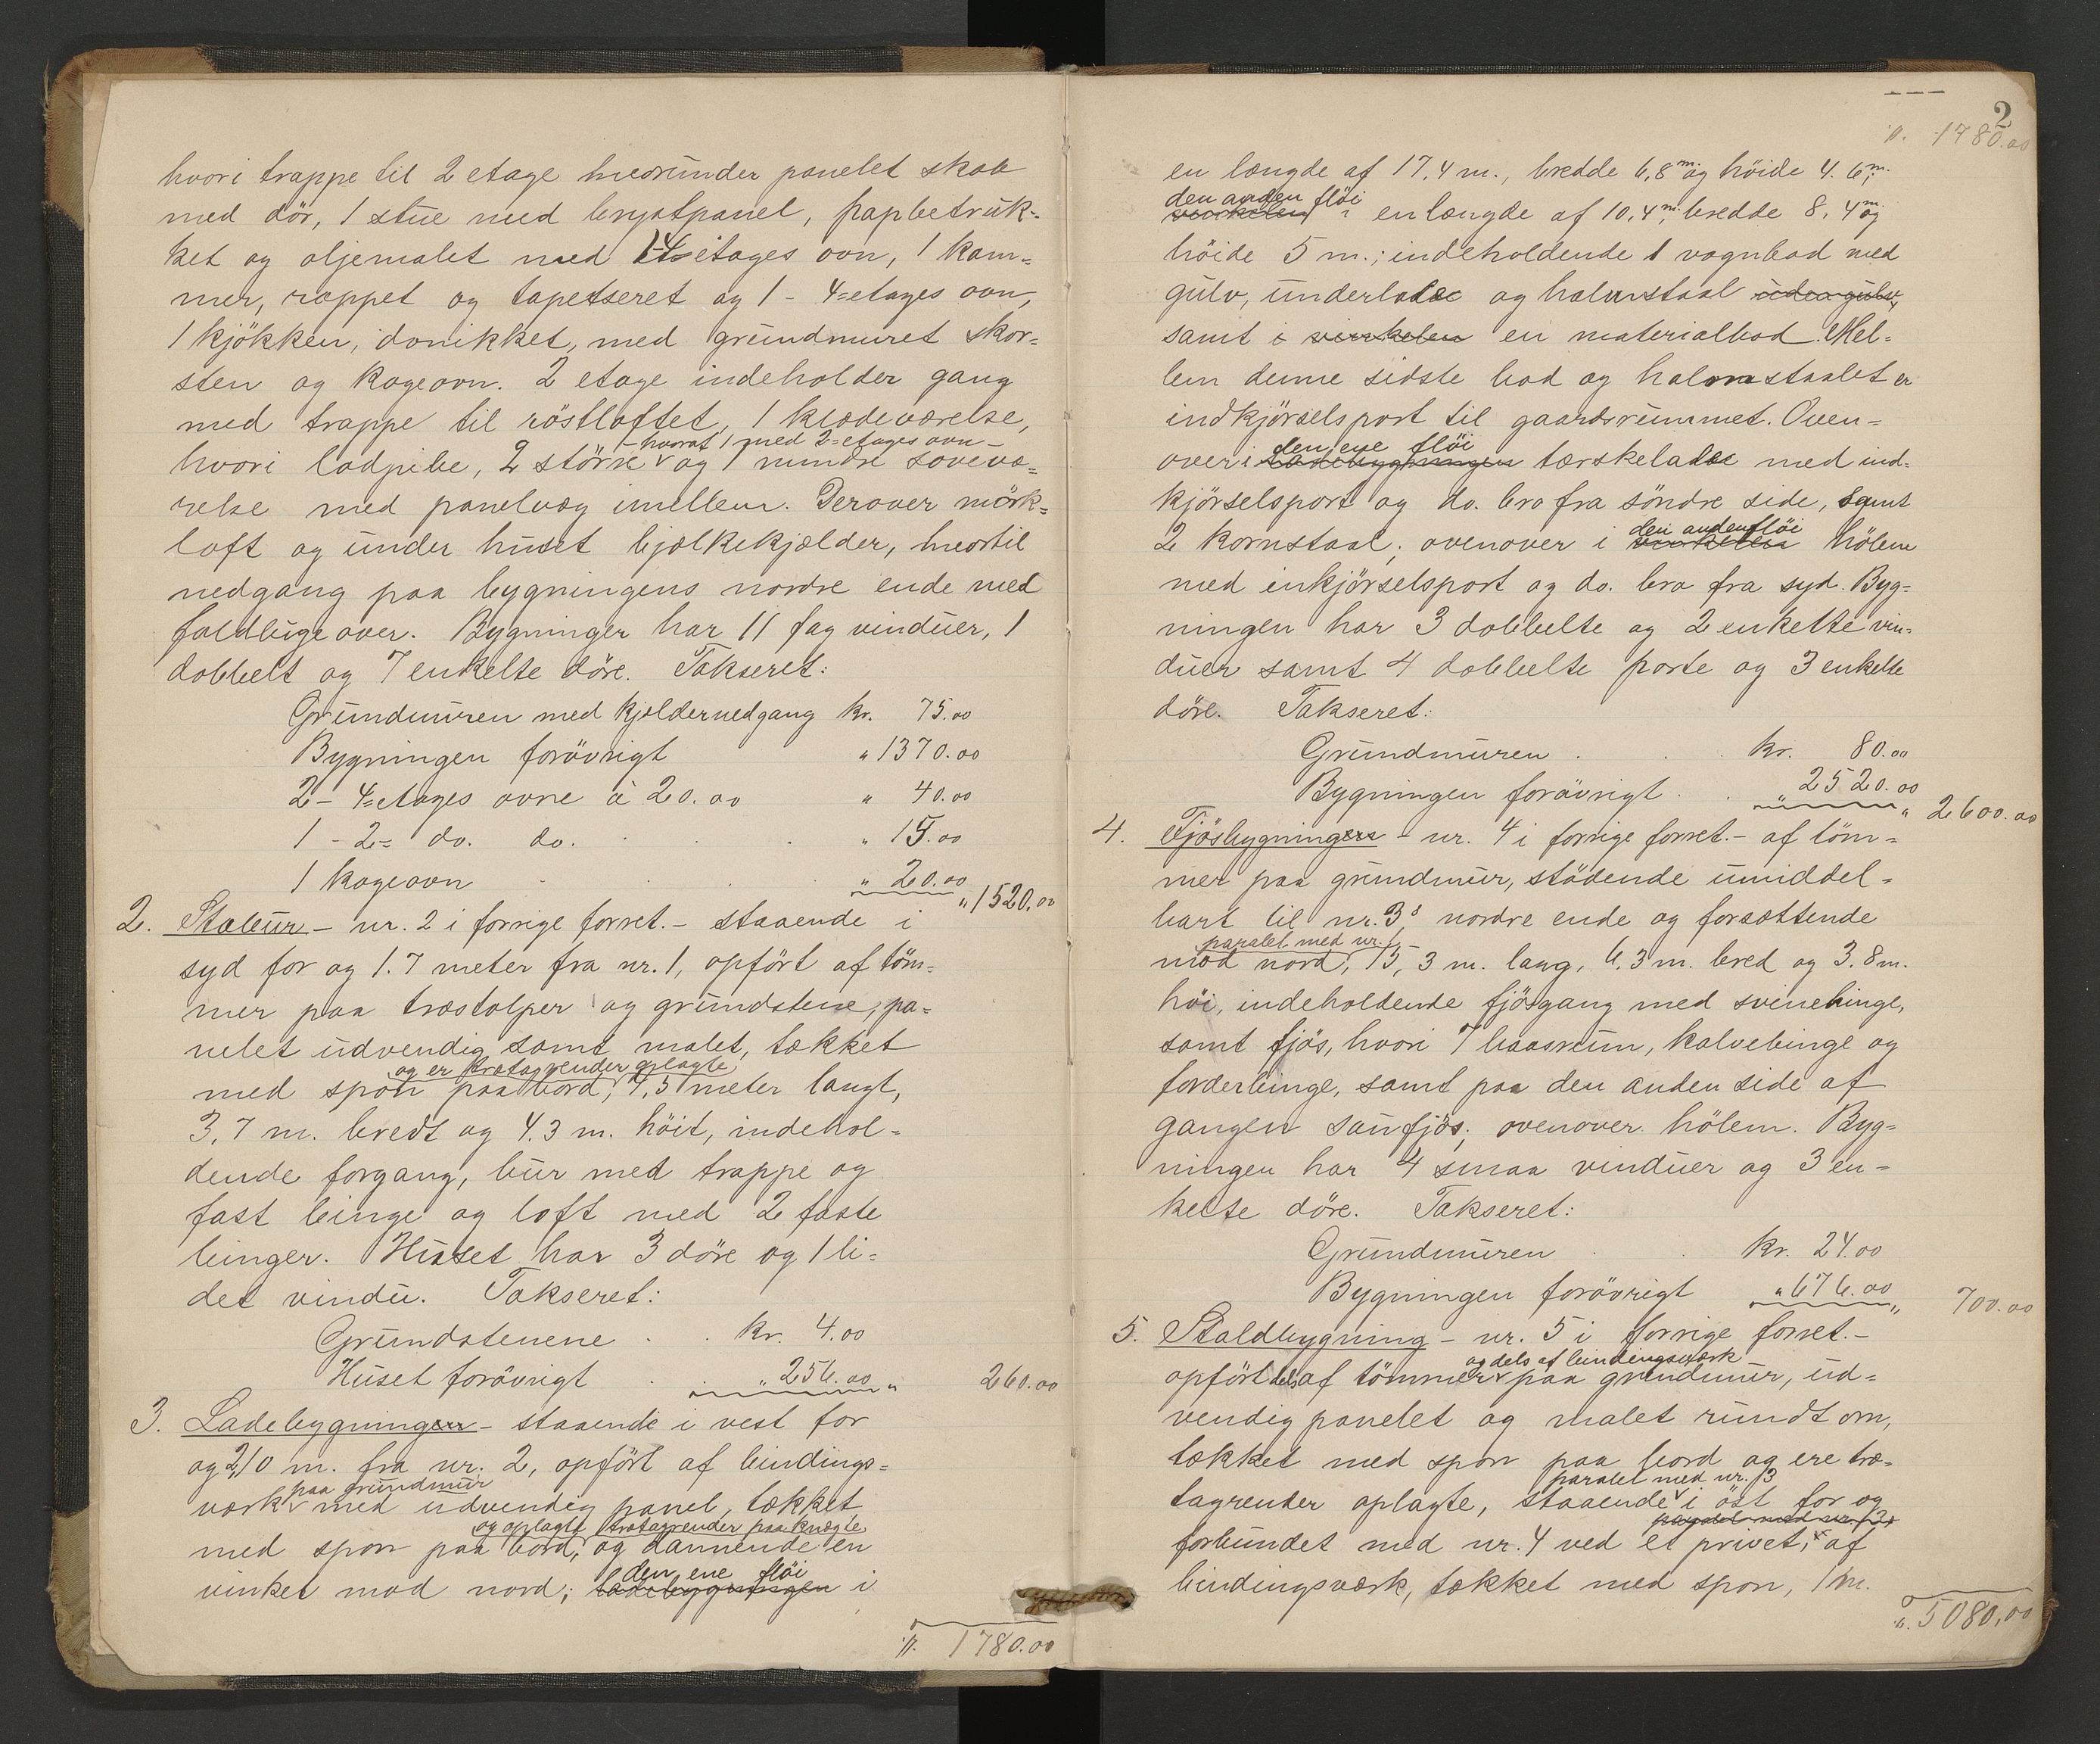 hvori trappe til 2 etage hvorunder panelet skab
med dör, 1 stue med brystpanel, papbetruk-
ket og oljemalet med 1-4-etages ovn, 1 kam-
mer, rappet og tapetseret og 1 - 4-etages ovn,
1 kjökken, do nikket, med grundmuret skor-
sten og kogeovn. 2 etage indeholder gang
med trappe til röstloftet, 1 klædeværelse,
- hvoraf 1 med 2-etages ovn -
hvori ladpibe, 2 större og 1 mindre sovevæ-
relse med panelvæg imellem. Derover mörk-
loft og under huset bjelkekjælder, hvortil
nedgang paa bygningens nordre ende med
faldluge over. Bygninger har 11 fag vinduer, 1
dobbelt og 7 enkelte döre. Takseret:
Grundmuren med kjeldernedgang kr. 75.00
Bygningen forövrigt " 1370.00
2 - 4-etages ovne à 20.00 " 40.00
1 - 2- do. do. " 15.00
1 kogeovn " 20.00
" 1520.00
2. Stabur - nr. 2 i forrige forret. - staaende i
syd for og 1.7 meter fra nr. 1, opfört af töm-
mer paa træstolper og grundstene, pa-
nelet udvendig samt malet, tækket
og er trætagrender oplagte
med spon paa bord, 4,5 meter langt,
3,7 m. bredt og 4.3 m. höit, indehol-
dende forgang, bur med trappe og
fast binge og loft med 2 faste
binger. Huset har 3 döre og 1 li-
det vindu. Takseret:
Grundstenene kr. 4.00
Huset forövrigt " 256.00 " 260.00
3. Ladebygningen - staaende i vest for
og 2,10 m. fra nr. 2, opfört af bindings-
paa grundmur
værk med udvendig panel, tækket
og oplagte trætagrender paa knægte
med spon paa bord, og dannende en
den ene flöi
vinkel mod nord; ladebygningen i
1780.00
2
1780.00
en længde af 17,4 m., bredde 6,8 m. og höide 4.6 m.
den anden flöi
vinkelen i en længde af 10,4 m. bredde 8,4 m. og
höide 5 m.; indeholdende 1 vognbod med
gulv, underlade og halmstaal uden gulv,
samt i vinkelen en materialbod. Mel-
lem denne sidste bod og halmstaalet er
indkjörselsport til gaardsrummet. Oven-
den ene flöi
over i ladebygningen tærskelade med ind-
kjörselsport og do. bro fra söndre side, samt
den anden flöi
2 kornstaal; ovenover i vinkelen hölem
med inkjörselsport og do. bro fra syd. Byg-
ningen har 3 dobbelte og 2 enkelte vin-
duer samt 4 dobbelte porte og 3 enkelte
döre. Takseret:
Grundmuren kr. 80.00
Bygningen forövrigt " 2520.00 " 2600.00
4. Fjösbygningen - nr. 4 i forrige forret. - af töm-
mer paa grundmur, stödende umiddel-
bart til nr. 3s nordre ende og forsættende
paralel med nr. 1
mod nord, 15,3 m. lang, 6,3 m. bred og 3.8 m.
höi, indeholdende fjösgang med svinebinge,
samt fjös, hvori 7 baasrum, kalvebinge og
forderbinge, samt paa den anden side af
gangen saufjös; ovenover hölem. Byg-
ningen har 4 smaa vinduer og 3 en-
kelte döre. Takseret:
Grundmuren kr. 24.00
Bygningen forövrigt " 676.00 " 700.00
5. Staldbygning - nr. 5 i forrige forret. -
og dels af bindingsværk
opfört dels af tömmer paa grundmur, ud-
vendig panelet og malet rundt om,
tækket med spon paa bord og ere træ-
paralel med nr. 3
tagrender oplagte, staaende i öst for og
paralel med nr. 3,
forbundet med nr. 4 ved et privet, af
bindingsværk, tækket med spon, 1 m.
5080,00